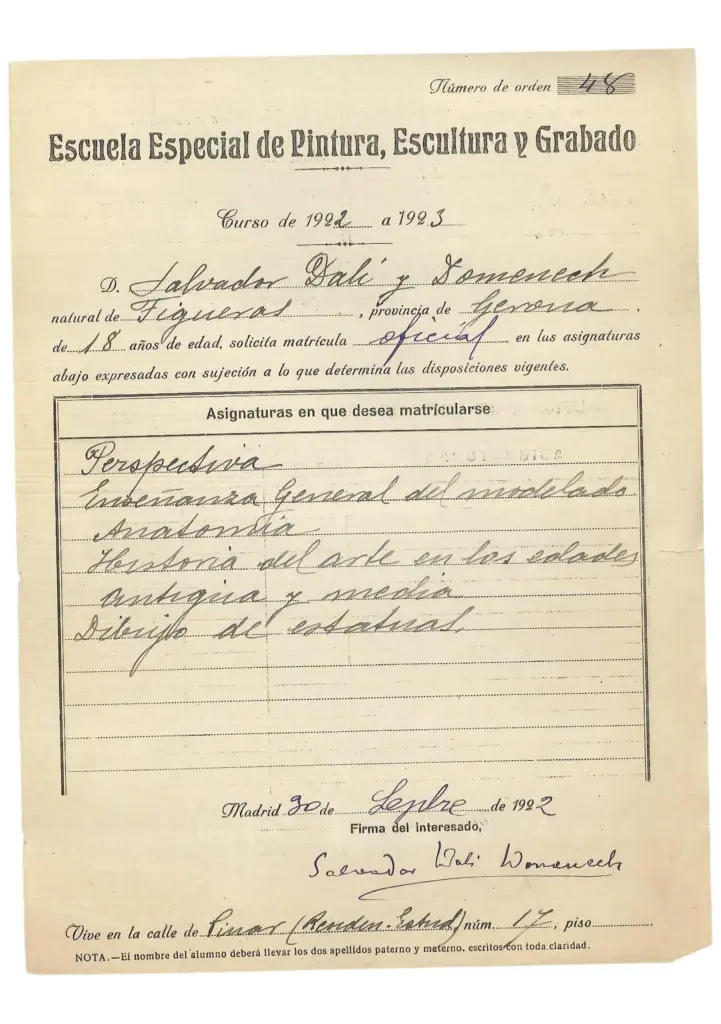 Número de orden 48
Escuela Especial de Pintura, Escultura y Grabado
Curso de 1922 a 1923
D. Salvador Dalí y Domenech
natural de Figueras, provincia de Gerona.
de 18 años de edad, solicita matrícula oficial en las asignaturas
abajo expresadas con sujeción a lo que determina las disposiciones vigentes.
Asignaturas en que desea matrícularse
Perspectiva
Enseñanza General del modelado
Anatomía
Historia del arte en las edades
antigua y media
Dibujo de estatuas.
Madrid 30 de Sepbre de 1922
Firma del interesado,
Salvador Dali Domenech
Vive en la calle de Pinar (Residen. Estud) núm. 17, piso
NOTA.—El nombre del alumno deberá llevar los dos apellidos paterno y materno, escritos con toda claridad.